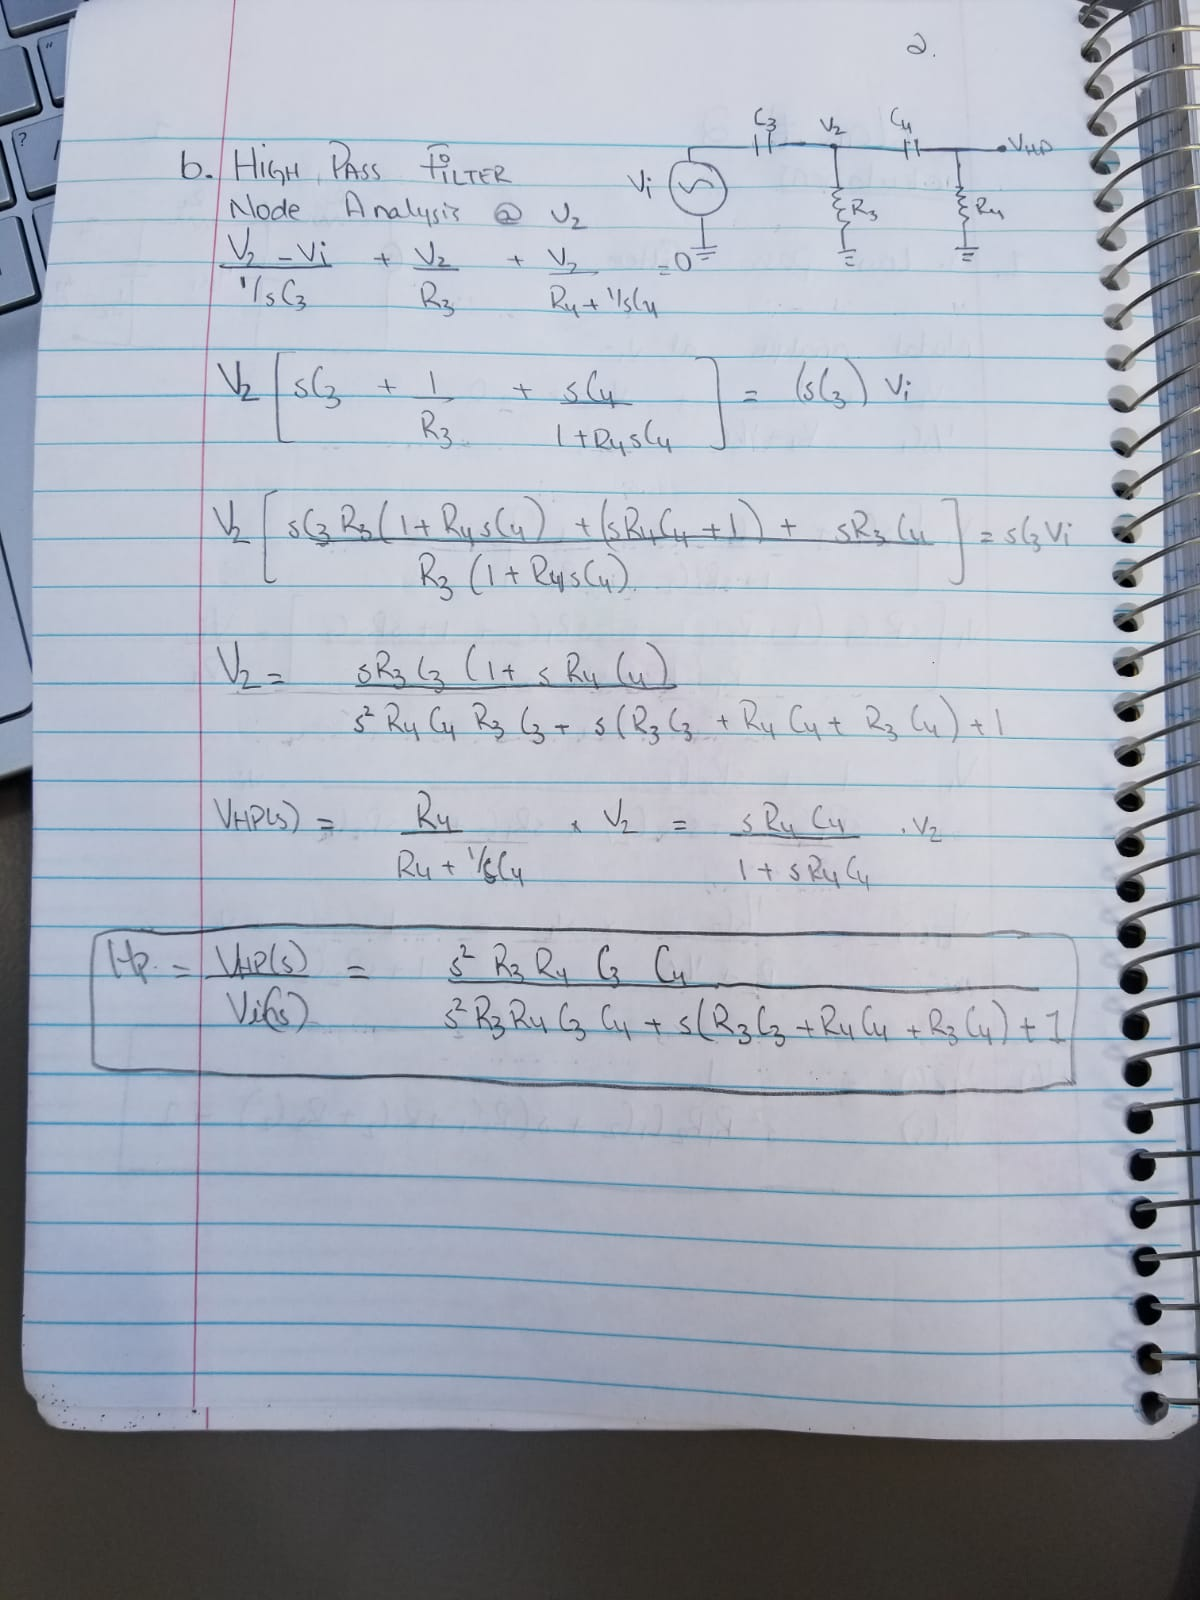 2.
C3 V2 C4 VHP
b. HIGH PASS FILTER
Vi R3 R4
Node Analysis @ V2
V2 - Vi / 1/sC3 + V2 / R3 + V2 / R4 + 1/sC4 = 0
V2 [ sC3 + 1 / R3 + sC4 / 1 + R4sC4 ] = (sC3) Vi
V2 [ sC3 R3 (1 + R4sC4) + (sR4C4 + 1) + sR3C4 / R3 (1 + R4sC4) ] = sC3Vi
V2 = sR3C3 (1 + sR4C4) / s² R4 C4 R3 C3 + s(R3C3 + R4C4 + R3C4) + 1
VHP(s) = R4 / R4 + 1/sC4 × V2 = sR4C4 / 1 + sR4C4 . V2
Hp. = VHP(s) / Vi(s) = s² R3 R4 C3 C4 / s² R3 R4 C3 C4 + s(R3C3 + R4C4 + R3C4) + 1